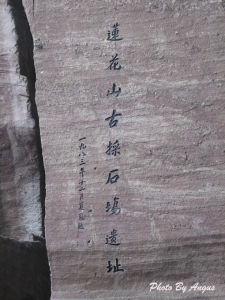 蓮花山古採石場遺址
一九八三年十一月
Photo By Angus